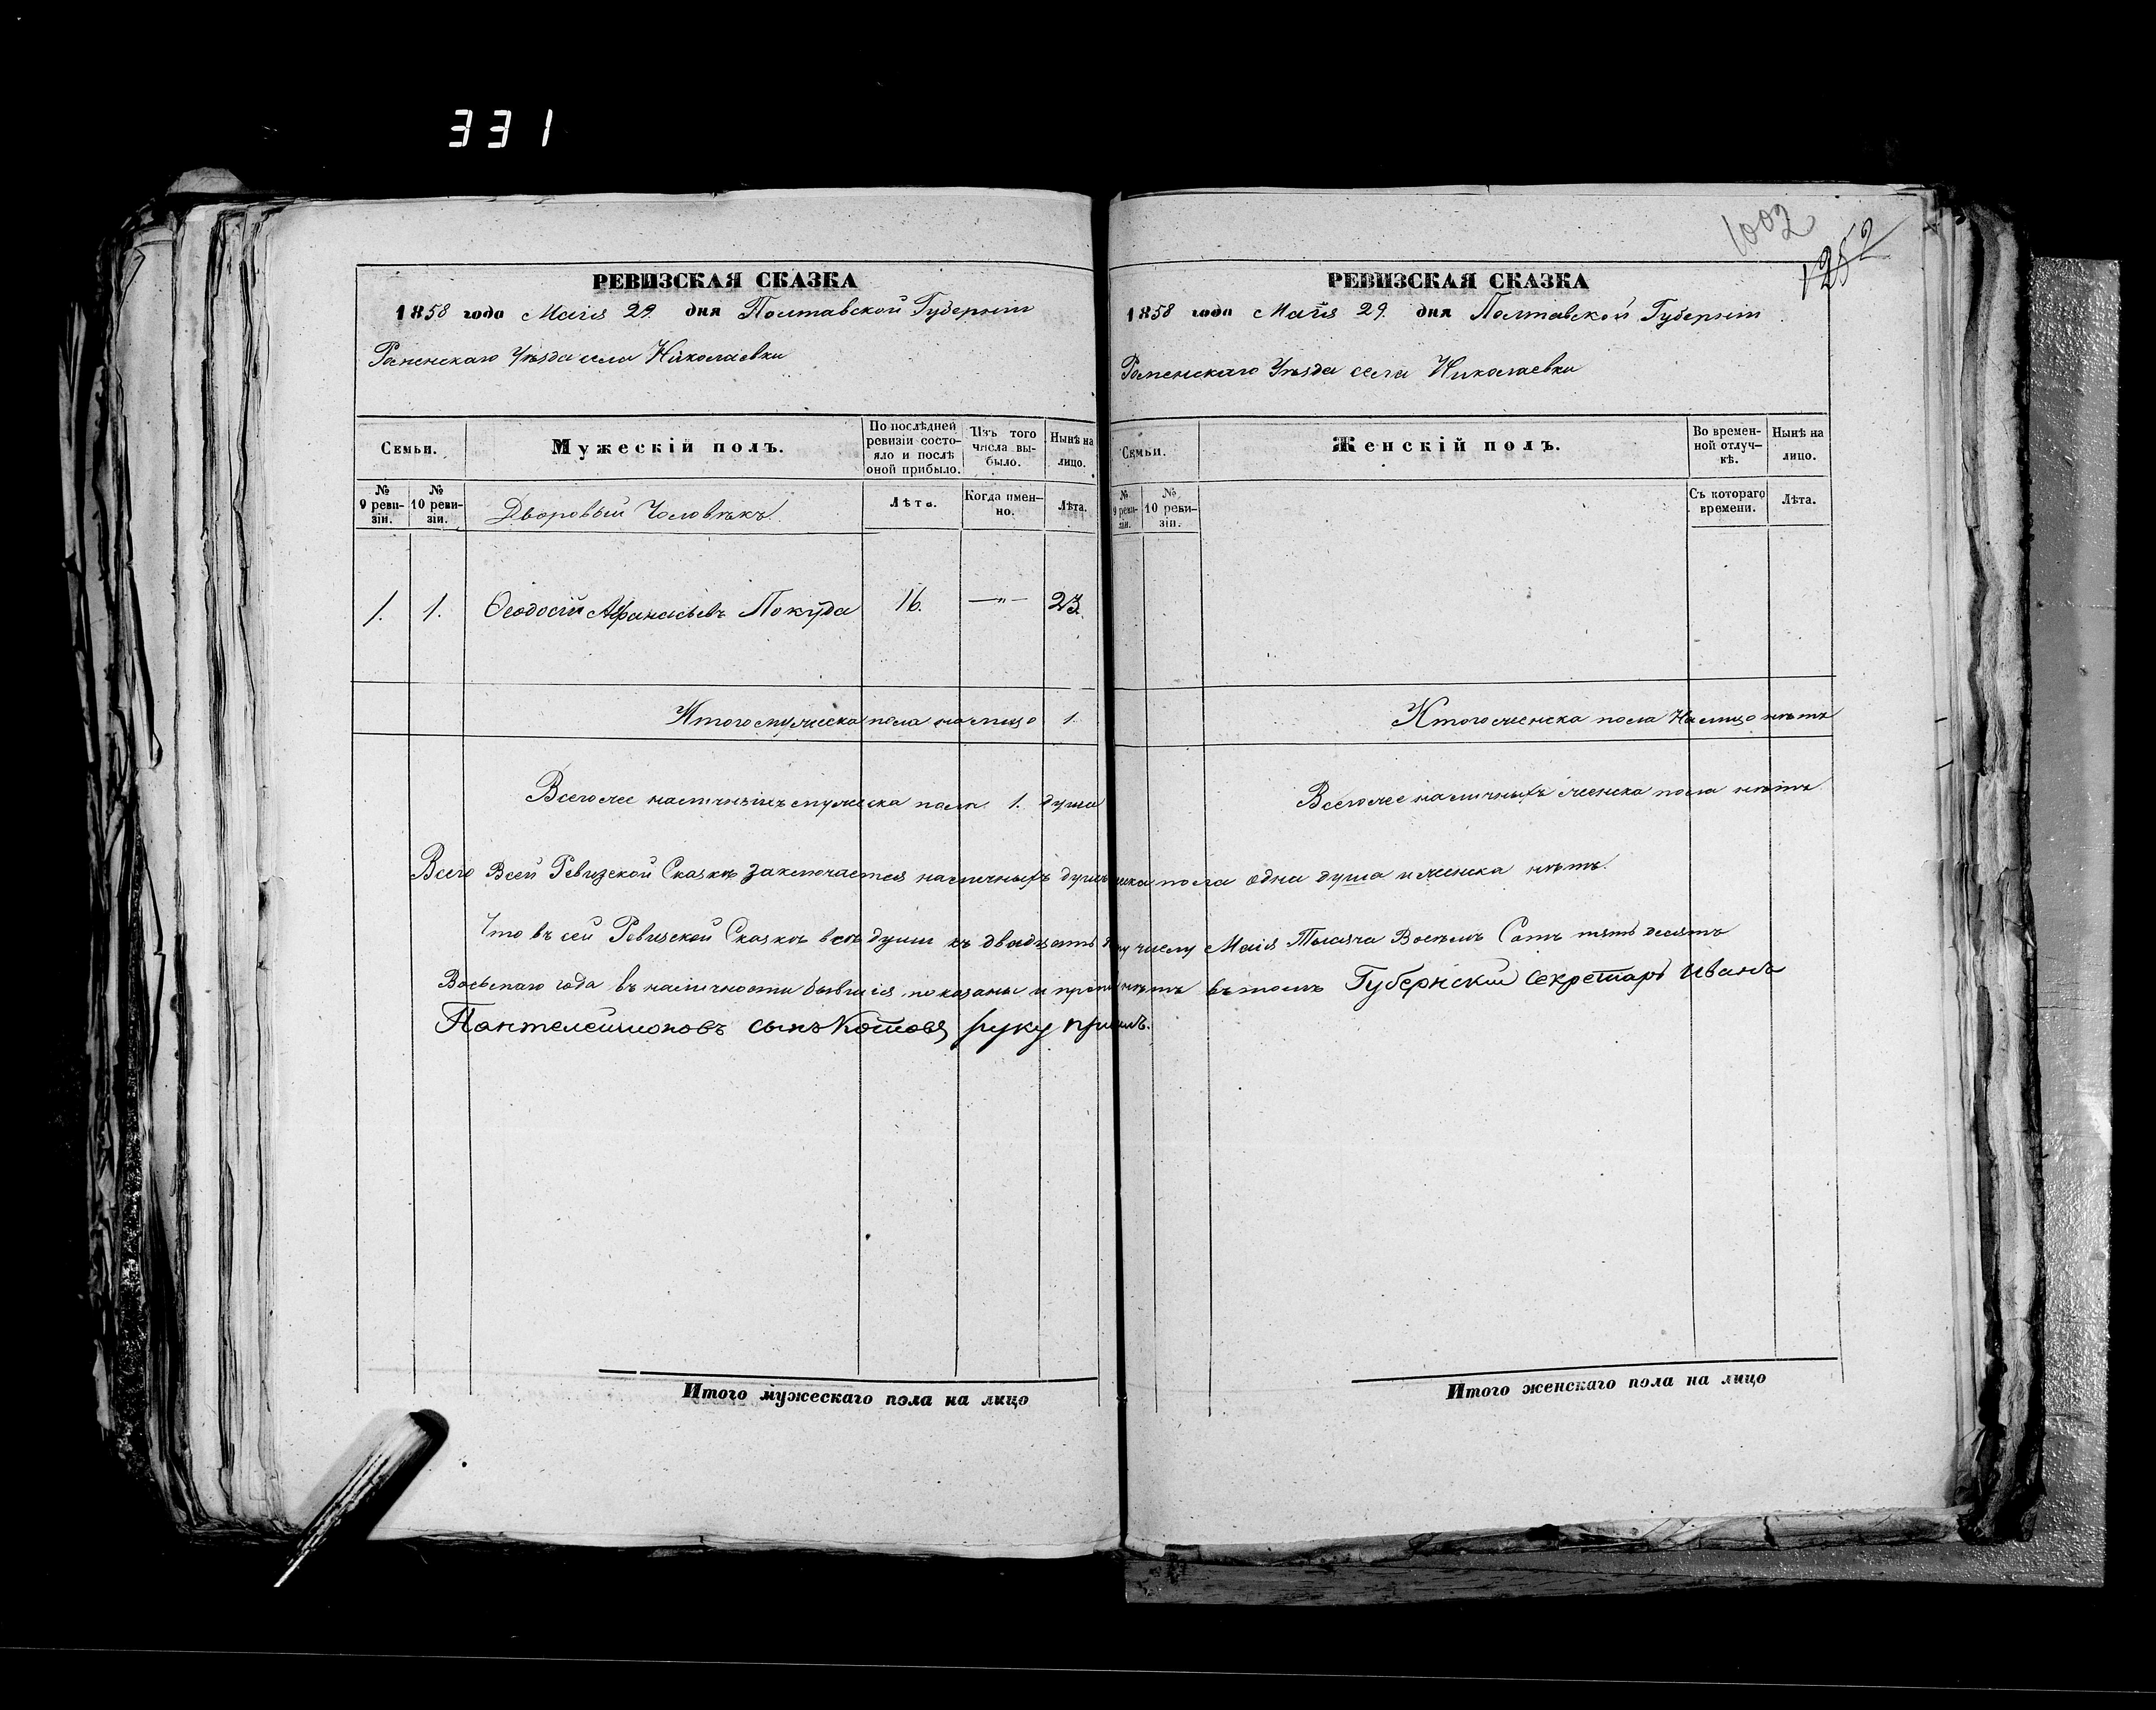 331
1002
1252
РЕВИЗСКАЯ СКАЗКА
1858 года Маія 29. дня Полтавской Губерніи
Роменскаго Уѣзда села Николаевки
Семьи.
Мужескій полъ.
По послѣдней ревизіи состояло и послѣ оной прибыло.
Изъ того числа выбыло.
Нынѣ на лицо.
№ 9 ревизіи.
№ 10 ревизіи.
Дворовый Человѣкъ.
Лѣта.
Когда именно.
Лѣта.
1. 1. Ѳеодосій Афанасьевъ Покуда 16. —"— 23.
Итого мужеска пола на лицо 1.
Всего же наличныхъ мужеска пола 1. душа
РЕВИЗСКАЯ СКАЗКА
1858 года Маія 29. дня Полтавской Губерніи
Роменскаго Уѣзда села Николаевки
Семьи.
Женскій полъ.
Во временной отлучкѣ.
Нынѣ на лицо.
№ 9 ревизіи.
№ 10 ревизіи.
Съ котораго времени.
Лѣта.
Итого женска пола на лицо нѣтъ
Всего же наличныхъ женска пола нѣтъ.
Всего Всей Ревизской Сказкѣ заключается наличныхъ пола одна душа и женска нѣтъ.
Что въ сей Ревизской Сказкѣ всѣ души къ двадцать числу Маія Тысяча Восемь Сотъ пять десятъ
Восьмаго года въ наличности бывшія показаны и нѣтъ въ томъ Губернскій Секретарь Иванъ
Пантелеимоновъ сынъ руку
Итого мужескаго пола на лицо
Итого женскаго пола на лицо